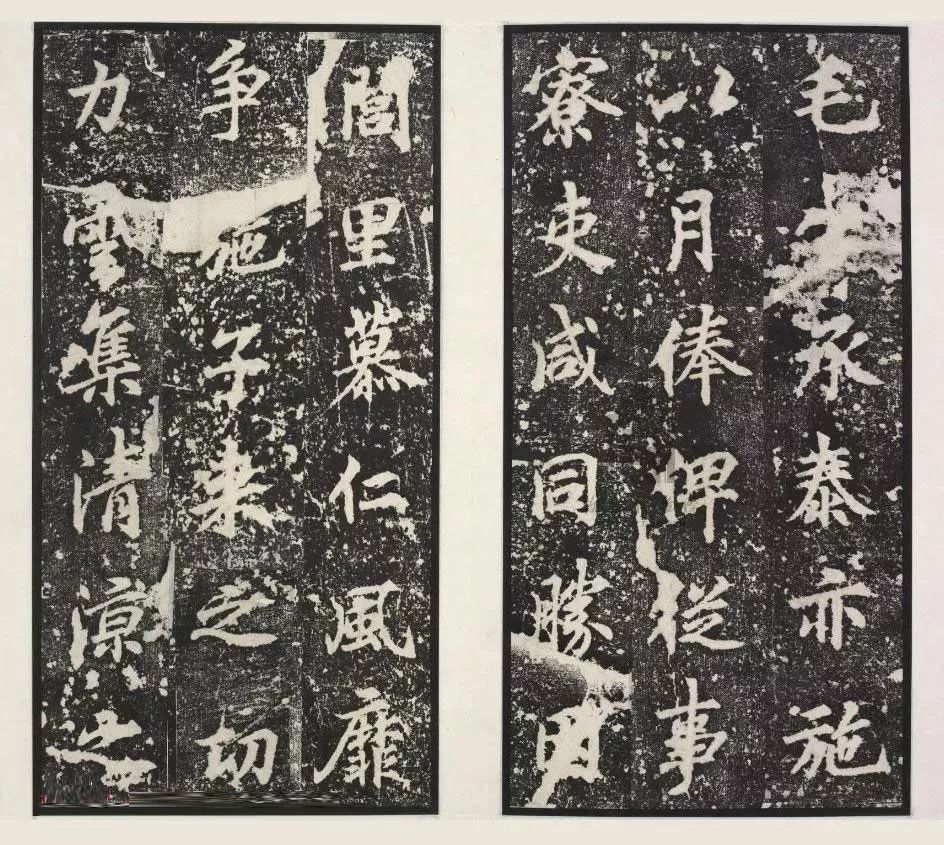 毛承泰亦施
以月俸俾從事
寮吏咸同勝因
閭里慕仁風靡
爭施子來之切
力雲集清涼之